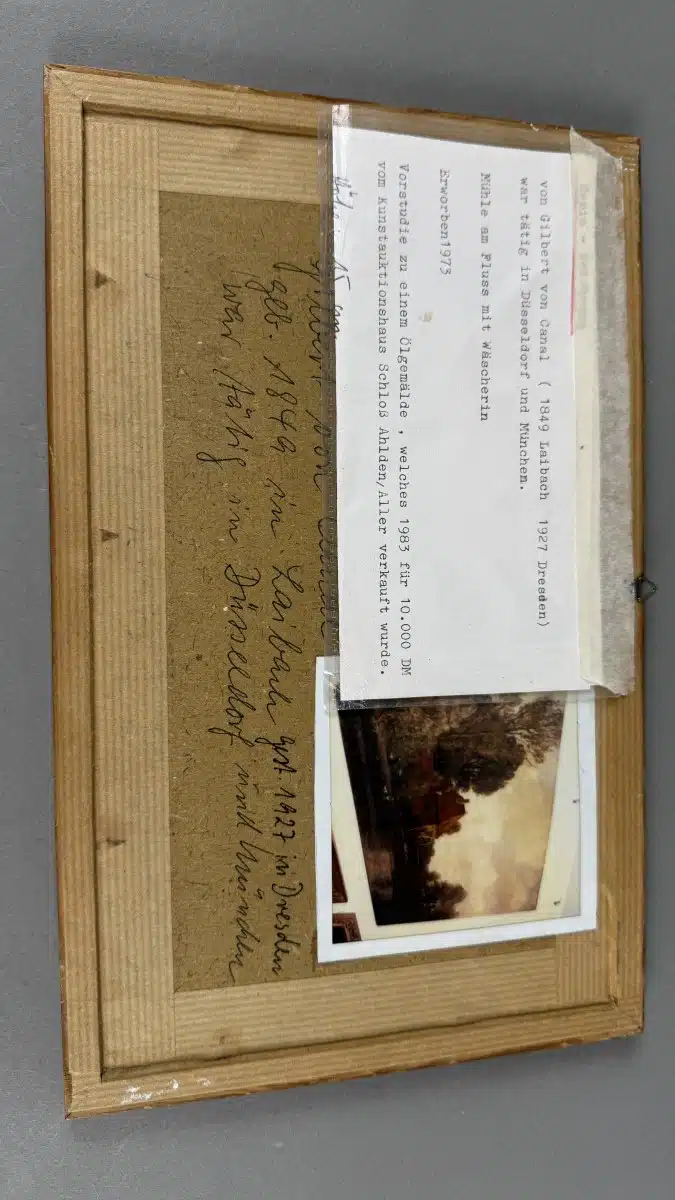 von Gilbert von Canal ( 1849 Laibach 1927 Dresden)
war tätig in Düsseldorf und München.
Mühle am Fluss mit Wäscherin
Erworben1973
Vorstudie zu einem Ölgemälde , welches 1983 für 10.000 DM
vom Kunstauktionshaus Schloß Ahlden/Aller verkauft wurde.
Gilbert von
geb. 1849 in Laibach gest. 1927 in Dresden
war tätig in Düsseldorf und München